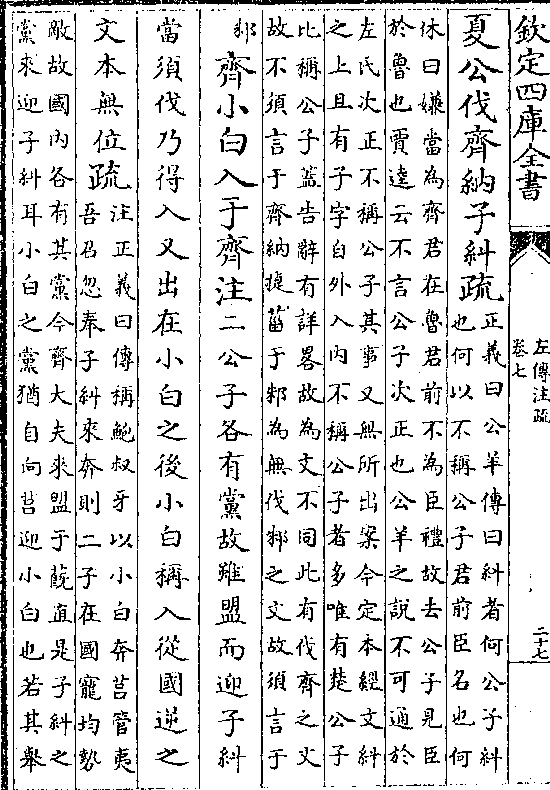 欽定四庫全書
左傳注疏
卷七
二十七
夏公伐齊納子糾疏正義曰公羊傳曰糾者何公子糾
也何以不稱公子君前臣名也何
休曰嫌當為齊君在魯君前不為臣禮故去公子見臣
於魯也賈逵云不言公子次正也公羊之說不可通於
左氏次正不稱公子其事又無所出案今定本經文糾
之上且有子字自外入內不稱公子者多唯有楚公子
比稱公子蓋告辭有詳畧故為文不同此有伐齊之文
故不須言于齊納捷菑于邾為無伐邾之文故須言于
邾
齊小白入于齊注二公子各有黨故雖盟而迎子糾
當須伐乃得入又出在小白之後小白稱入從國逆之
文本無位疏注正義曰傳稱鮑叔牙以小白奔莒管夷
吾召忽奉子糾來奔則二子在國寵均勢
敵故國內各有其黨今齊大夫來盟于蔇直是子糾之
黨來迎子糾耳小白之黨猶自向莒迎小白也若其舉